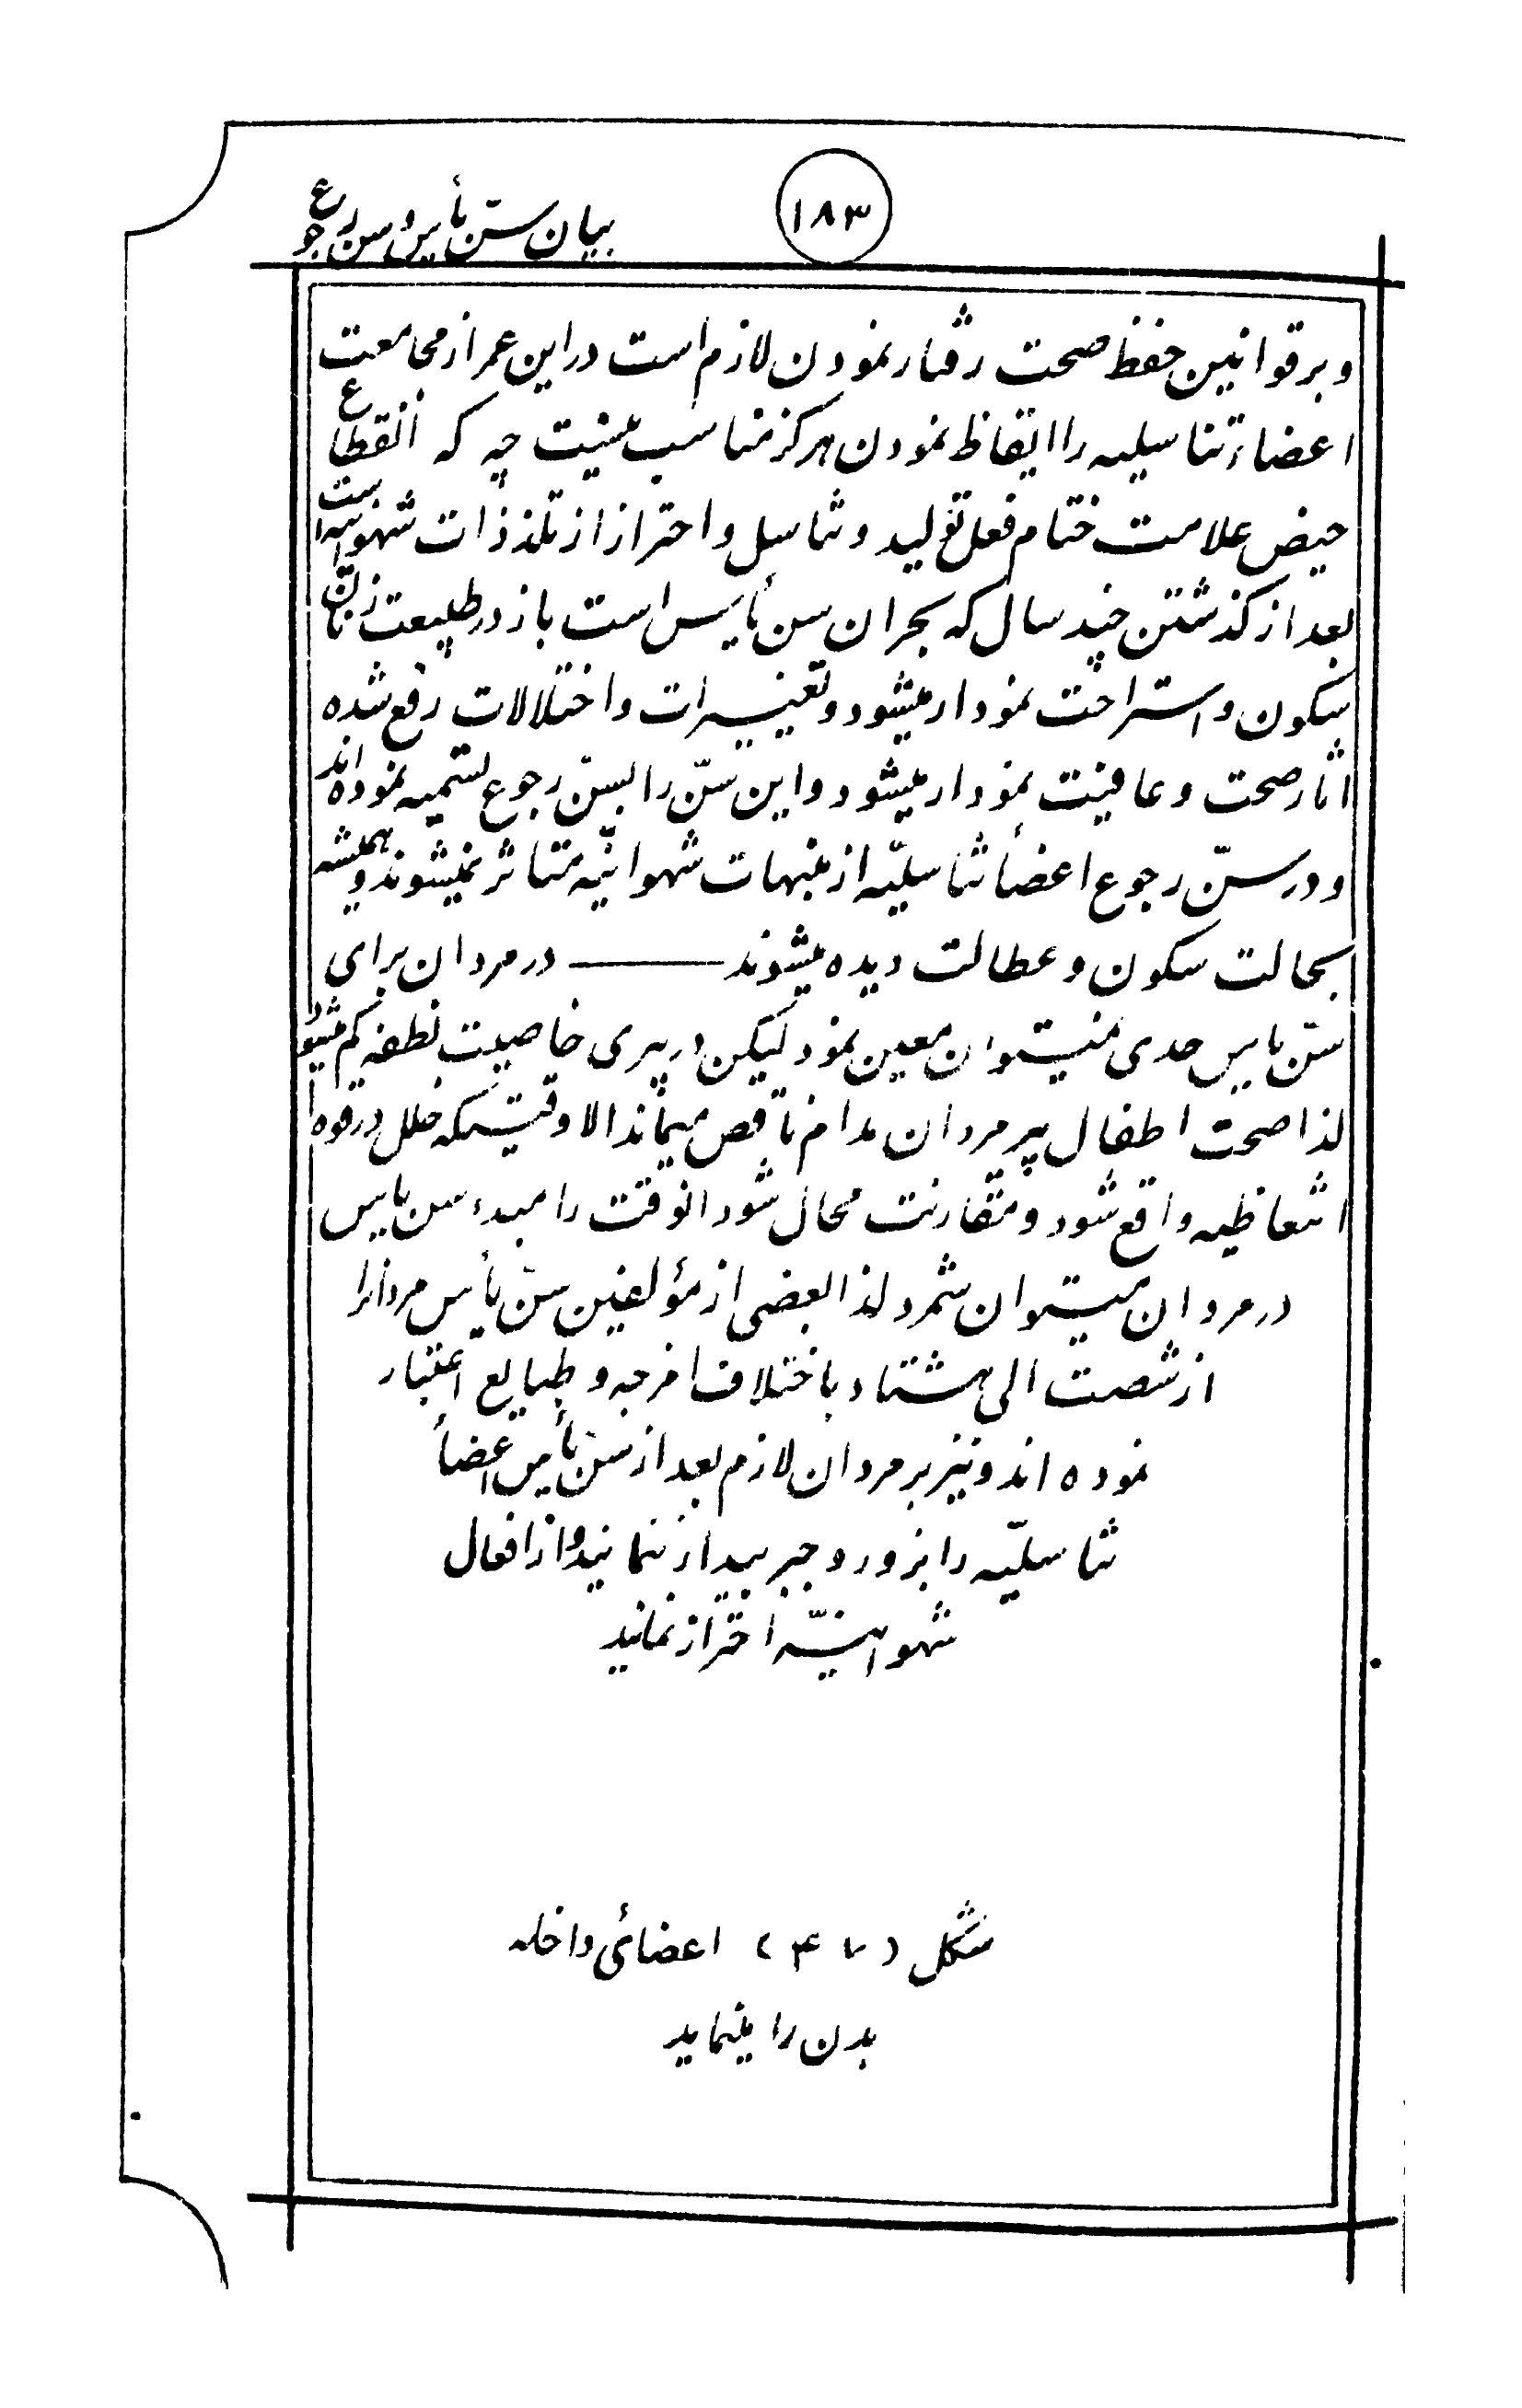 بیان سنّ یأس و سن رجوع
۱۸۳
و بر قوانین حفظ صحت رفتار نمودن لازم است در این عمر از مجامعت
اعضاء تناسلیه را ایقاظ نمودن هرکز مناسب نیست چه که انقطاع
حیض علامت ختام فعل تولید و تناسل و احتراز از تلذذات شهوانیه است
بعد از کذشتن چند سال که بحران سن یأس است باز در طبیعت زنان
سکون و استراحت نمودار میشود و تغییرات و اختلالات رفع شده
اثار صحت و عافیت نمودار میشود و این سنّ را بسنّ رجوع تسمیه نموده اند
و در سنّ رجوع اعضأ تناسلیّه از منبهات شهوانیّه متاثر نمیشوند و همیشه
بحالت سکون و عطالت دیده میشوند ——— در مردان برای
سنّ یاس حدی نمیتوان معین نمود لیکن در پیری خاصیت نطفه کم میشود
لذا صحت اطفال پیر مردان مدام ناقص میماند الا وقتیکه خلل در قوه
انتعاظیه واقع شود و مقارنت محال شود انوقت را مبدء سن یاس
در مردان میتوان شمرد لذا بعضی از مؤلفین سنّ یأس مردانرا
از شصت الی هشتاد باختلاف امزجه و طبایع اعتبار
نموده اند و نیز بر مردان لازم بعد از سنّ یأس اعضأ
تناسلیّه را بزور و جبر بیدار ننمایند و از افعال
شهوانیّه احتراز نمایند
شکل (۴۷) اعضائی داخله
بدن را مینماید